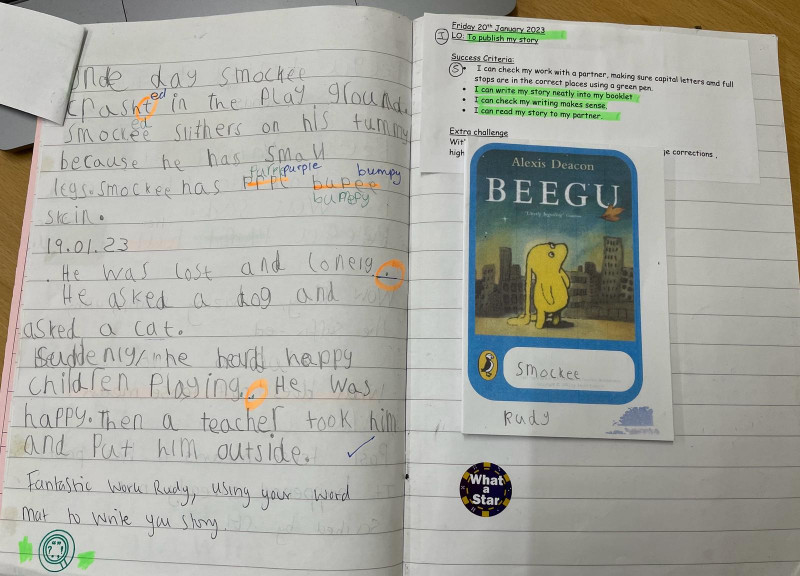 onde day smockee
crasht ed in the Play ground.
ed
smockee slithers on his tummy
because he has small
purple bumpy
legs. smockee has buppee
bumpy
skin.
19.01.23
He was lost and lonely.
He asked a dog and
asked a cat.
Suddenly he heard happy
children Playing. He was
happy. Then a teacher took him
and Put him outside.
Fantastic work Rudy, using your word
mat to write you story.
Friday 20th January 2023
I LO: To publish my story
Success Criteria:
S • I can check my work with a partner, making sure capital letters amd full
stops are in the correct places using a green pen.
• I can write my story neatly into my booklet
• I can check my writing makes sense.
• I can read my story to my partner.
Extra challenge
Wit
high
ge corrections,
Alexis Deacon
BEEGU
smockee
Rudy
What
a
Star